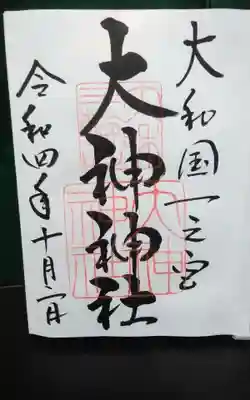 大和国一之宮
大神神社
令和四年十月一日